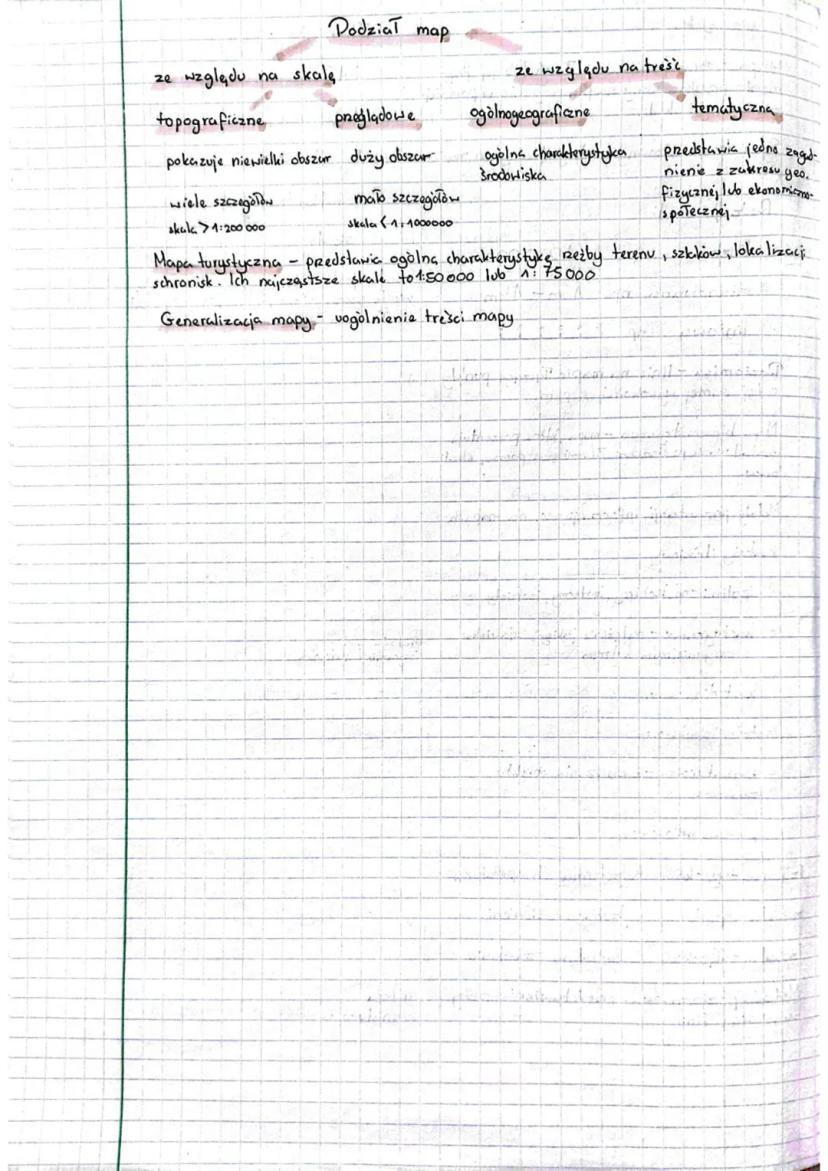 Podział map
ze względu na skalę
ze względu na treść
topograficzne
przeglądowe
ogólnogeograficzne
tematyczna
pokazuje niewielki obszar
duży obszar
ogólna charakterystyka
środowiska
przedstawia jedno zagad-
nienie z zakresu geo.
fizycznej lub ekonomiczno-
społecznej
wiele szczegółów
mało szczegółów
skala > 1:200 000
skala < 1:1000000
Mapa turystyczna - przedstawia ogólną charakterystykę rzeźby terenu, szlaków, lokalizacji
schronisk. Ich najczęstsze skale to 1:50 000 lub 1: 75 000
Generalizacja mapy - uogólnienie treści mapy